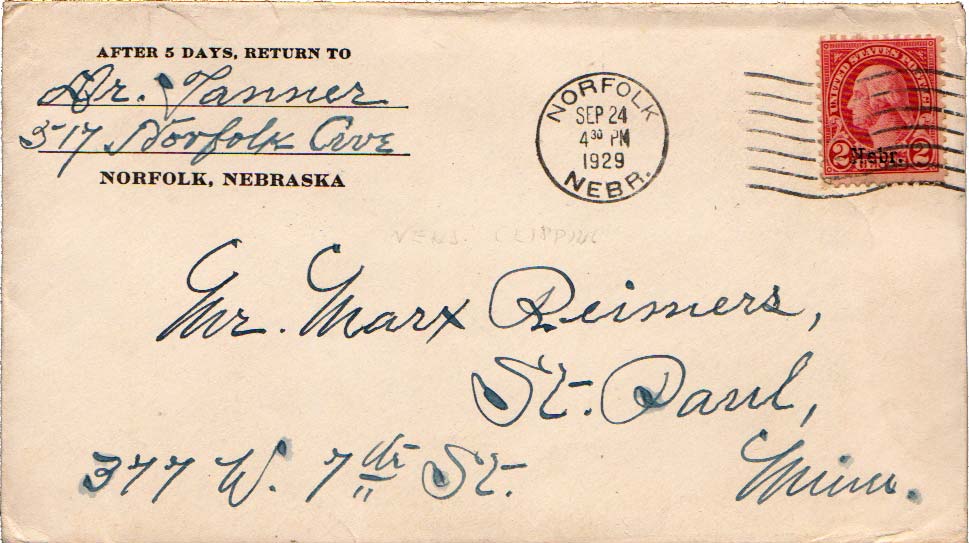 AFTER 5 DAYS, RETURN TO
Dr. Tanner
517 Norfolk Ave
NORFOLK, NEBRASKA
NORFOLK
SEP 24
4 30 PM
1929
NEBR.
UNITED STATES POSTAGE
2 Nebr. 2
CENTS
Mr. Marx Reimers,
St. Paul,
377 W. 7th St. Minn.